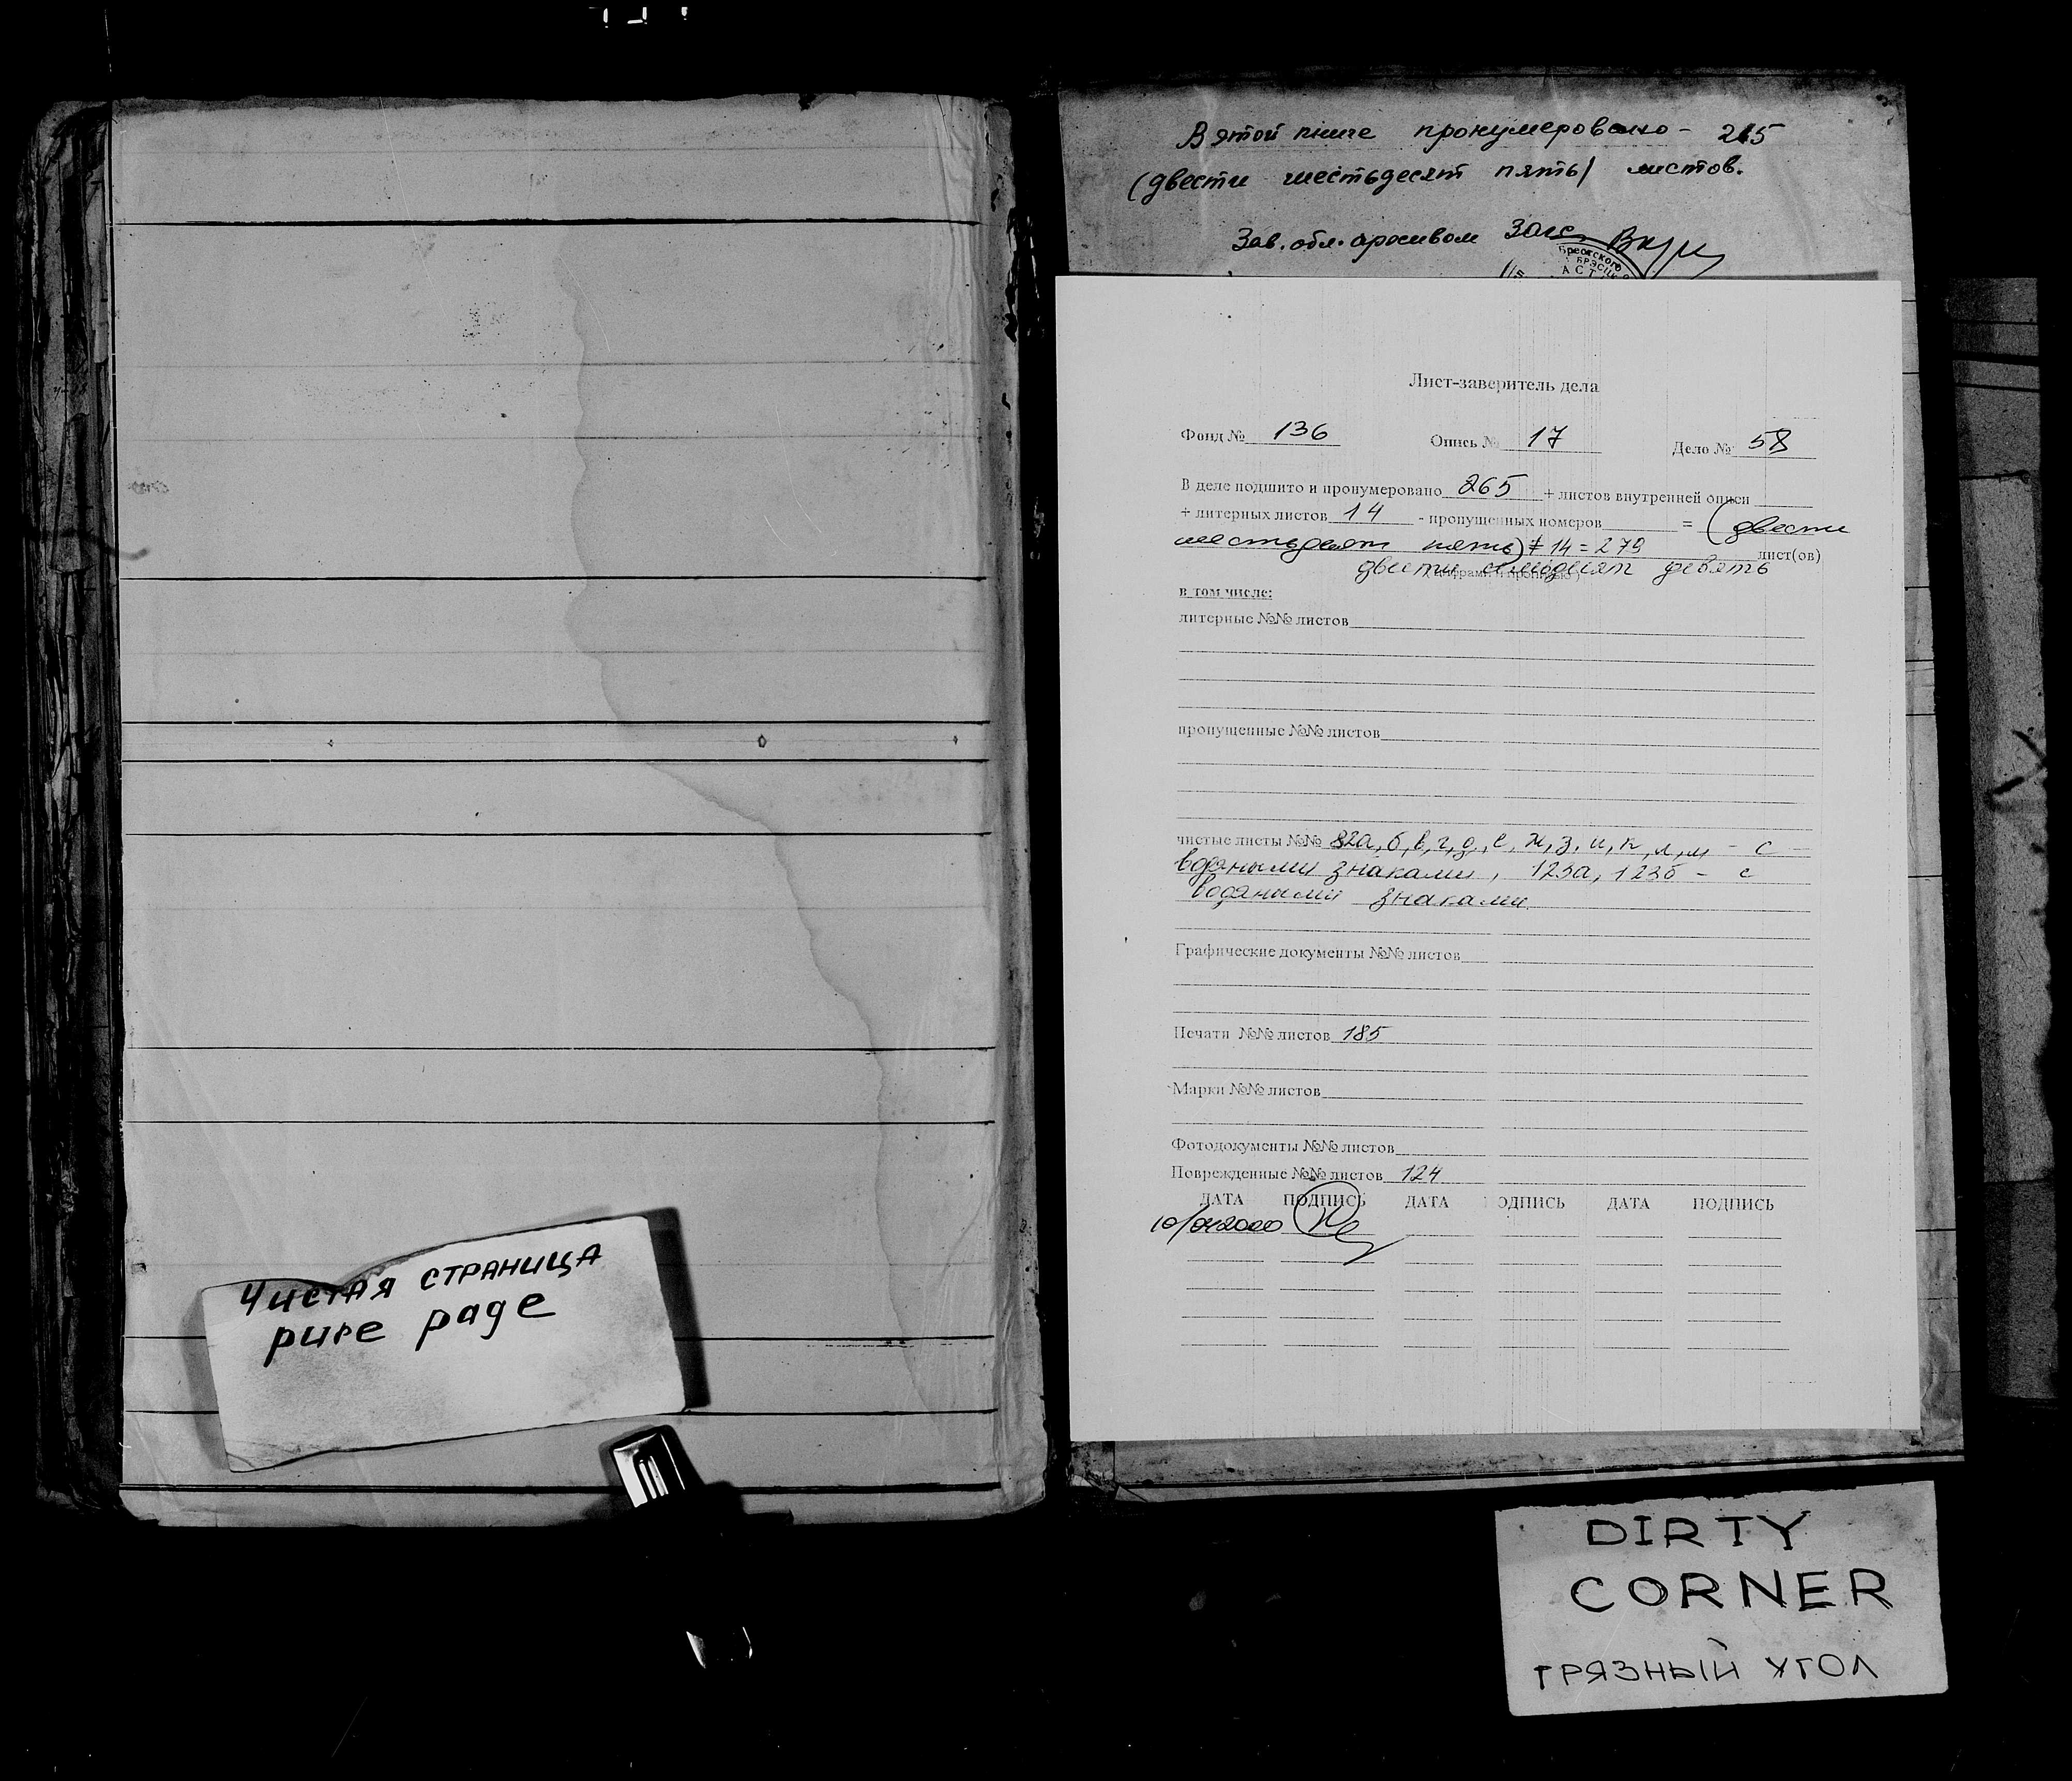 Чистая страница
pure page
В этой книге пронумеровано - 265
(двести шестьдесят пять) листов.
Зав. обл. архивом Загс
Брестского
БРЭСЦК
АСТ
Лист-заверитель дела
Фонд № 136 Опись № 17 Дело № 58
В деле подшито и пронумеровано 265 + листов внутренней описи
+ литерных листов 14 - пропущенных номеров = (двести
шестьдесят пять) + 14 = 279 лист(ов)
двести семьдесят девять
(цифрами и прописью)
в том числе:
литерные №№ листов
пропущенные №№ листов
чистые листы №№ 82а, б, в, г, д, е, ж, з, и, к, л, м, - с
водяными знаками, 123а, 123б - с
водяными знаками
Графические документы №№ листов
Печати №№ листов 185
Марки №№ листов
Фотодокументы №№ листов
Поврежденные №№ листов 124
ДАТА ПОДПИСЬ ДАТА ПОДПИСЬ ДАТА ПОДПИСЬ
DIRTY
CORNER
ГРЯЗНЫЙ УГОЛ